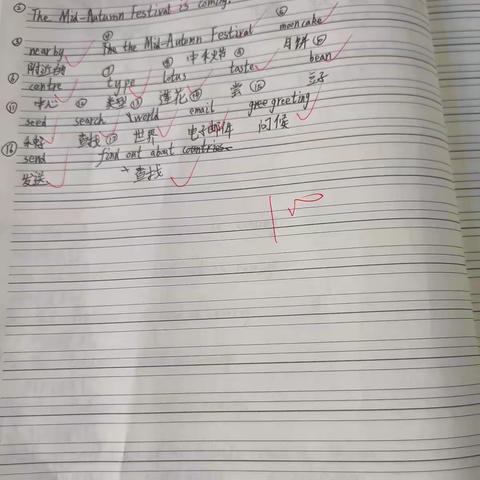 ② The Mid-Autumn Festival is coming.
③ nearby ④ the the Mid-Autumn Festival ⑤ mooncake
附近的 中秋节 月饼
⑥ centre ⑦ type ⑧ lotus ⑨ taste ⑩ bean
⑪ 中心 ⑫ 类型 ⑬ 莲花 ⑭ 尝 ⑮ 豆子
seed search world email gree greeting
查找 世界 电子邮件 问候
⑯ send ⑰ find out about countries
发送 查找